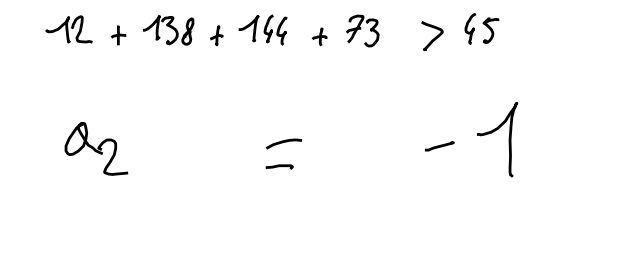 12 + 138 + 144 + 73 > 45
a₂ = - 1